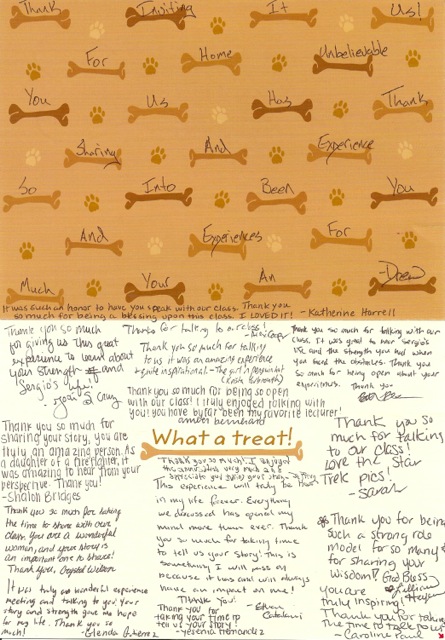 Thank Inviting It Us!
For Home Unbelievable
You Us Has Thank
Sharing And Experience
So Into Been You
And Experiences For
Much Your An -Drew
It was such an honor to have you speak with our class. Thank you
so much for being a blessing upon this class. I LOVED it! - Katherine Harrell
Thank you so much
for giving us this great
experience to learn about
your strength and
Sergio's life.
Thanks for talking to our class!
Thank you so much for talking
to us it was an amazing experience
+ quite inspirational. - The girl in
Thank you so much for being so open
with our class! I truly enjoyed talking with
you! You have by far been my favorite lecturer!
amber bernhard
Thank you so much for talking with our
class. It was great to hear Sergio's
life and the strength you had when
you faced the obstacles. Thank you
so much for being open about your
experiences. Thank you
Thank you so much for
sharing your story, you are
truly an amazing person. As
a daughter of a firefighter, it
was amazing to hear from your
perspective. Thank you!
- Sharon Bridges
What a treat!
Thank you so much
much for talking
to our class!
Love the Star
Trek pics!
- Sarah
Thank you so much! I enjoyed
This experience will truly be
in my life forever. Everything
we discussed has opened my
mind more than ever. Thank
you so much for taking time
to tell us your story! This is
something I will pass on
because it has and will always
have an impact on me!
Thank You!
Thank you so much for taking
the time to share with our
class. You are a wonderful
woman, and your story is
an important one to share!
Thank You, Crystal
It was truly a wonderful experience
meeting and talking to you. Your
story and strength gave me hope
for my life. Thank you so
much! - Glenda Gutierrez
Thank you for
taking your time to
tell us your story!
- Yesenia Hernandez
Thank you for being
such a strong role
model for so many
for sharing your
wisdom! God Bless
you are
truly inspiring!
Thank you for taking
the time to talk to us!
Caroline